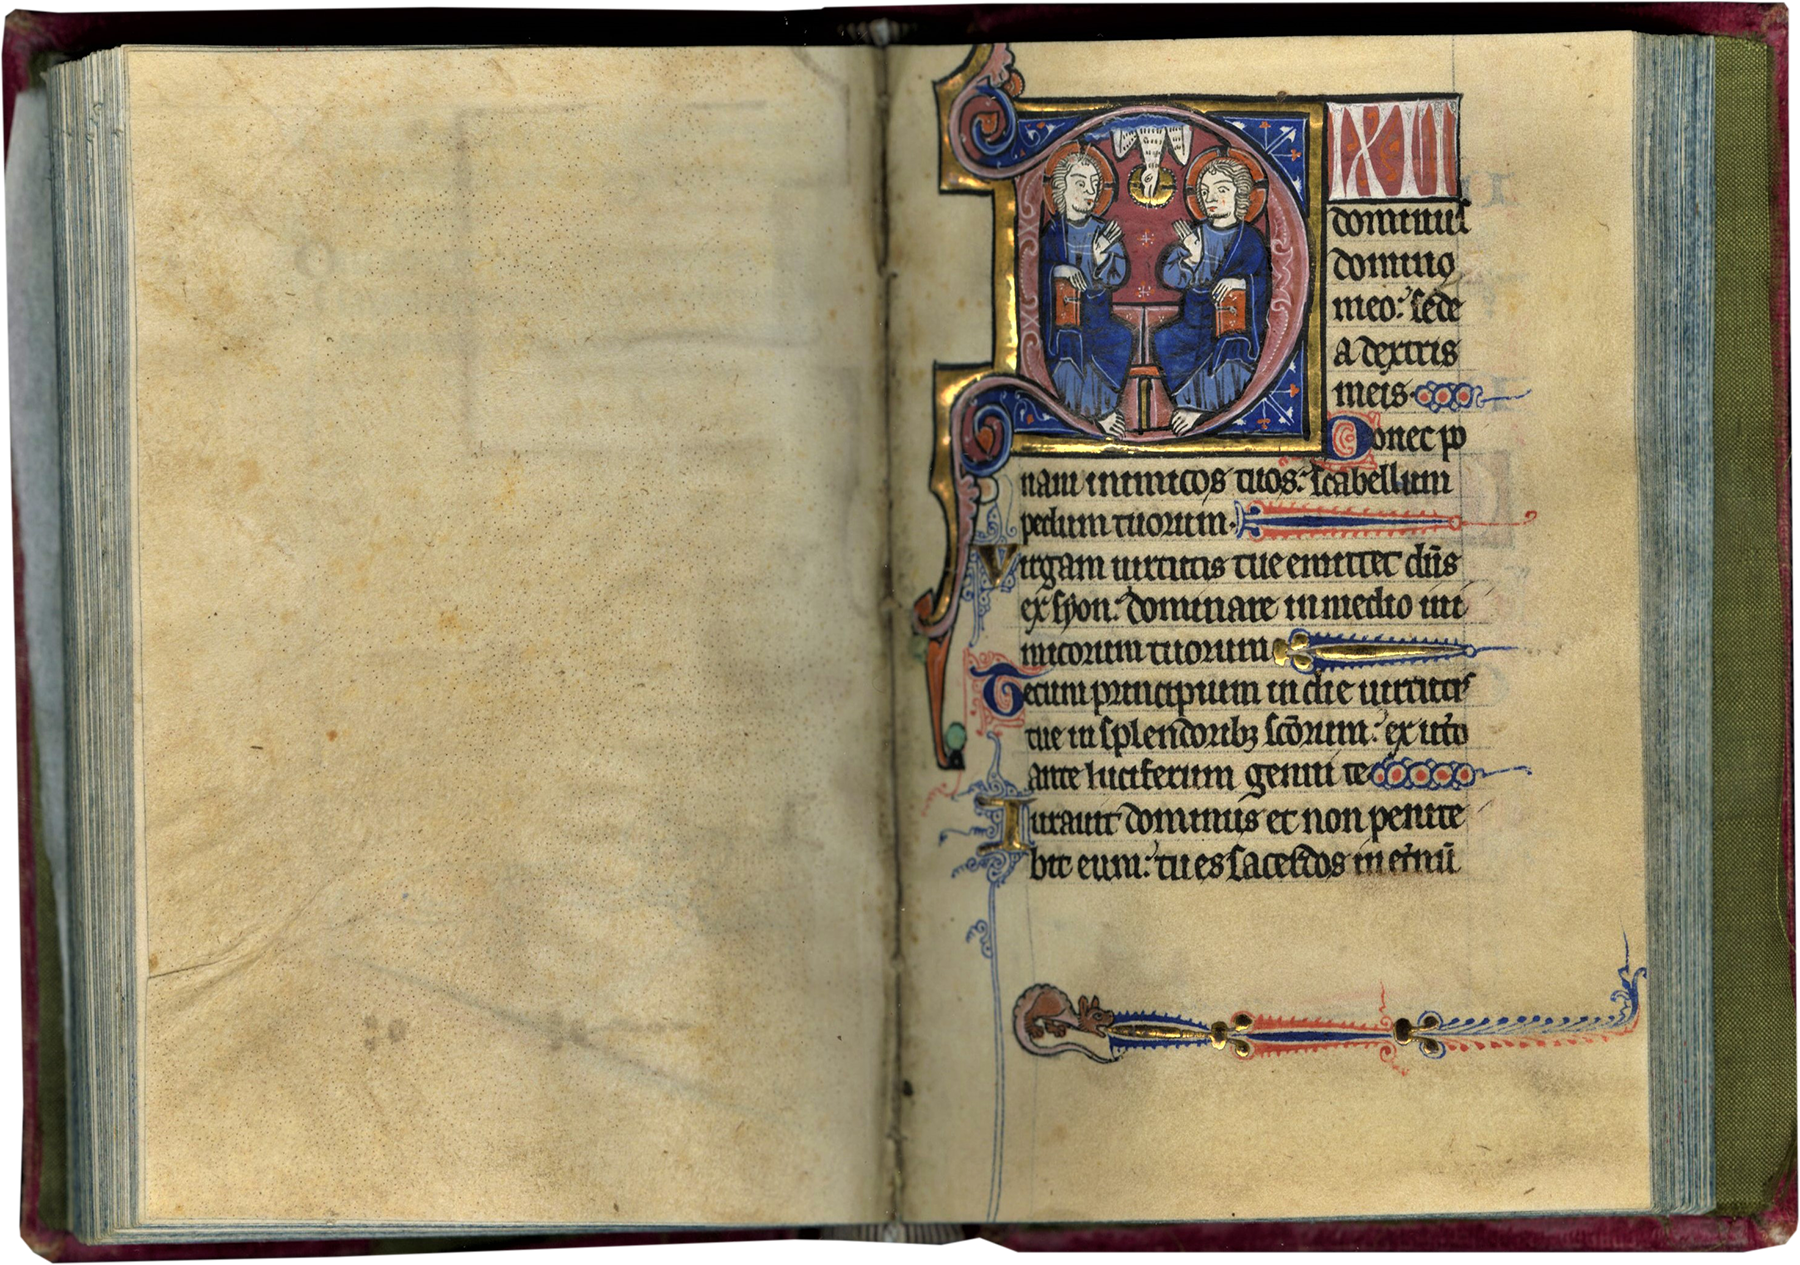 DIXIT
dominus
domino
meo: sede
a dextris
meis.
Donec po
nam inimicos tuos: scabellum
pedum tuorum.
Virgam uirtutis tue emittet dñs
ex syon: dominare in medio ini
micorum tuorum
Tecum principium in die uirtutis
tue in splendorib; scõrum: ex ut'o
ante luciferum genui te
Iurauit dominus et non penite
bit eum: tu es sacerdos in et'nũ